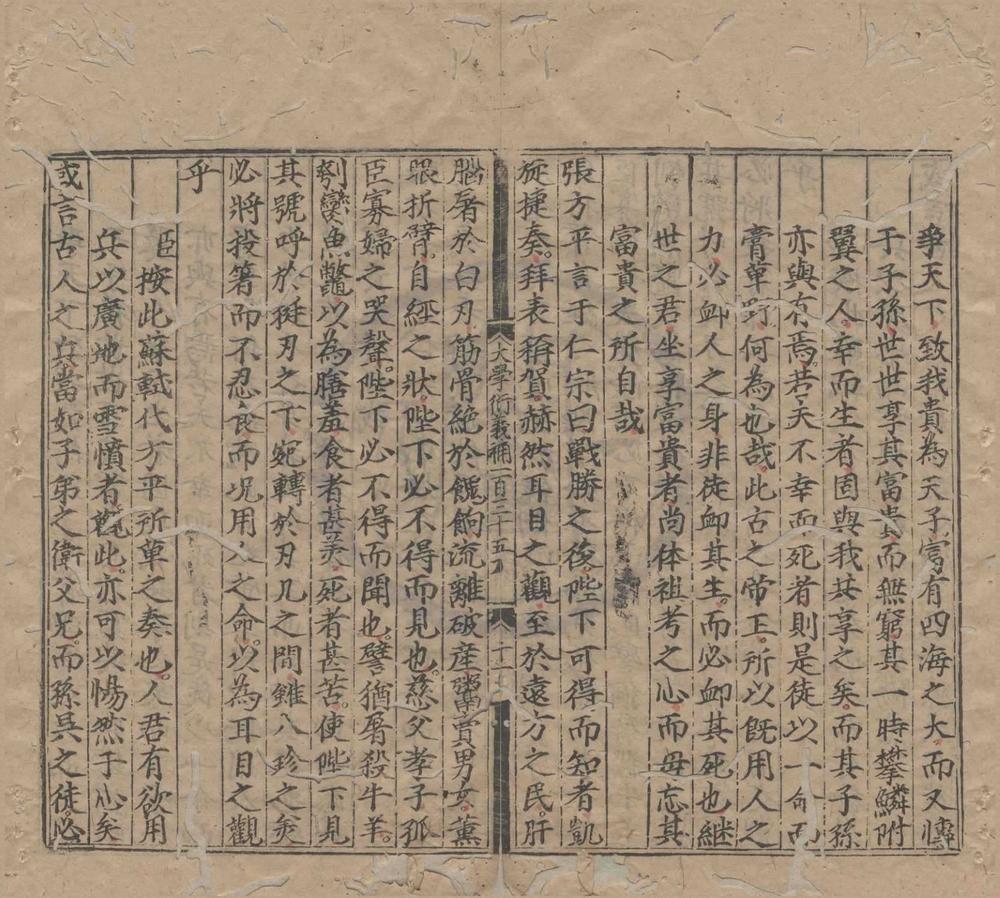 爭天下致我貴為天子富有四海之大而又傳
于子孫世世享其富貴而無窮其一時攀鱗附
翼之人幸而生者固與我共享之矣而其子孫
亦與有焉若夫不幸而死者則是徒以一命而
膏草野何為也哉此古之帝王所以既用人之
力必衈人之身非徒衈其生而必衈其死也継
世之君坐享富貴者尚体祖考之心而毋忘其
富貴之所自哉
張方平言于仁宗曰戰勝之後陛下可得而知者凱
旋捷奏拜表稱賀赫然耳目之觀至於遠方之民肝
大學衍義補一百三十五 十一
腦屠於白刃筋骨絕於餽餉流離破産鬻賣男女薫
眼折臂自經之狀陛下必不得而見也慈父孝子孤
臣寡婦之哭聲陛下必不得而聞也譬猶屠殺牛羊
刳臠魚鼈以為膳羞食者甚美死者甚苦使陛下見
其號呼於挺刃之下宛轉於刀几之間雖八珍之美
必將投箸而不忍食而况用人之命以為耳目之觀
乎
臣按此蘇軾代方平所草之奏也人君有欲用
兵以廣地而雪憤者觀此亦可以惕然于心矣
或言古人之兵當如子弟之衛父兄而孫吳之徒必